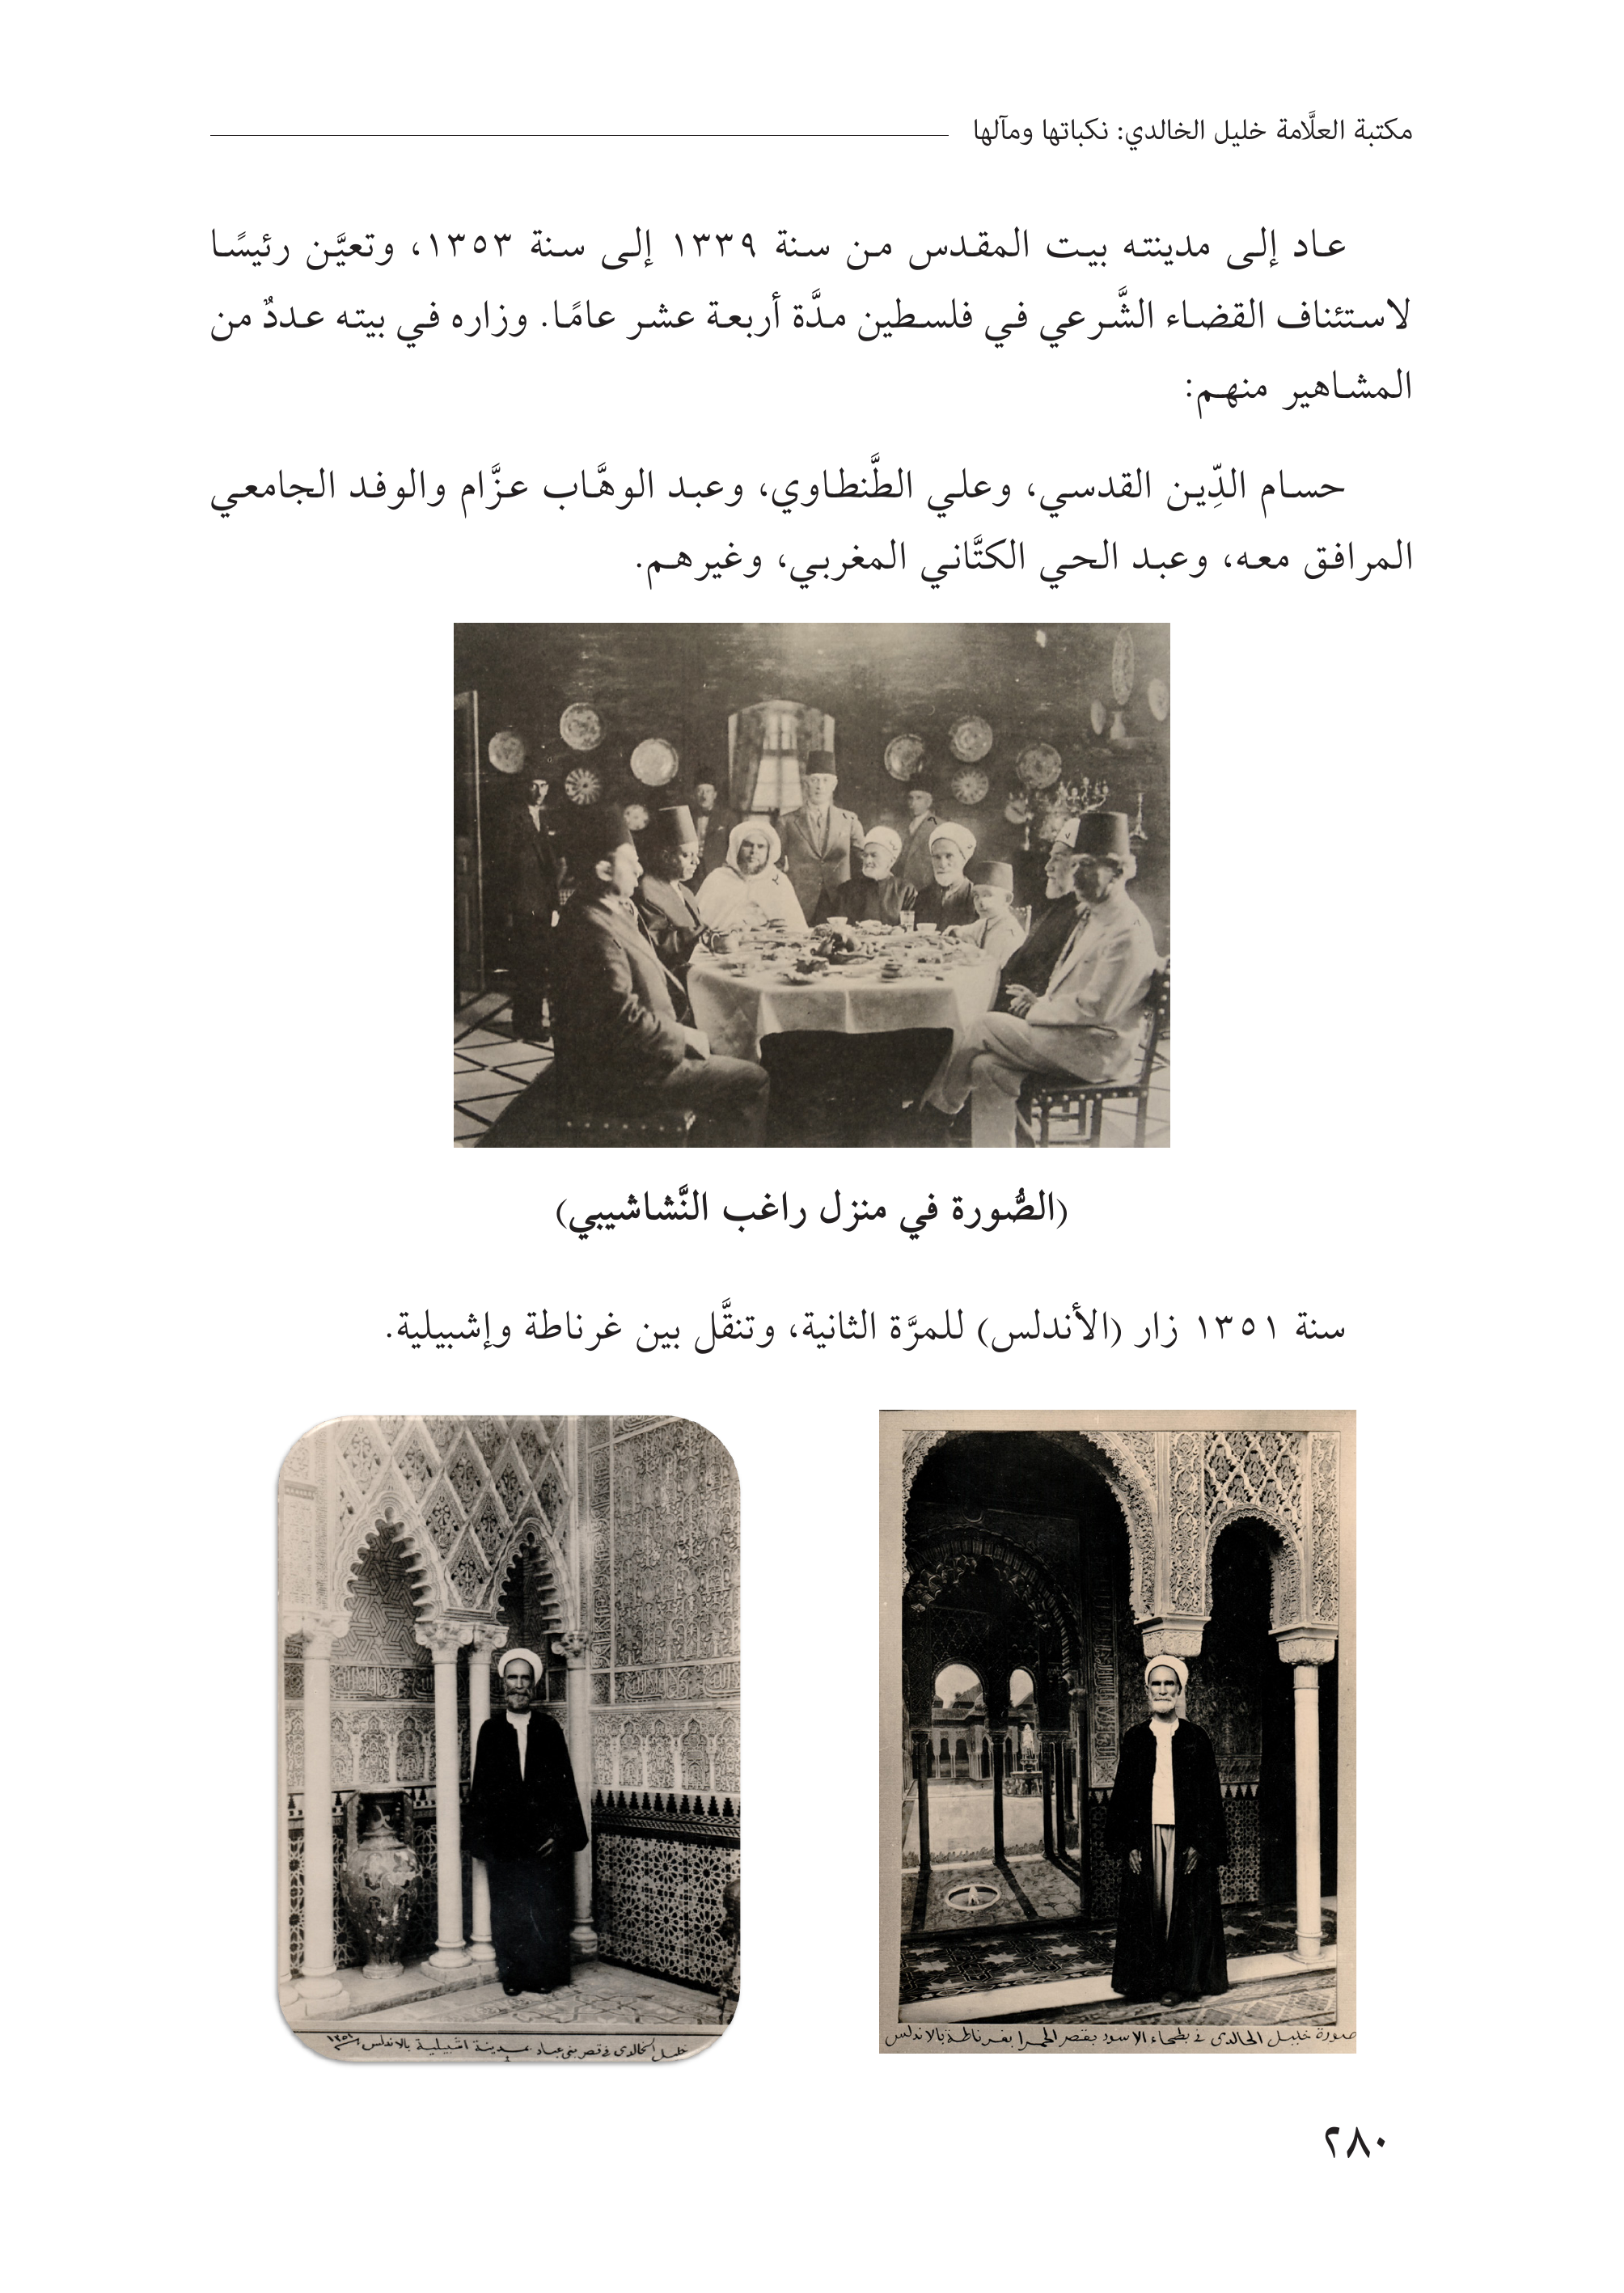 مكتبة العلَّامة خليل الخالدي: نكباتها ومآلها
عاد إلى مدينته بيت المقدس من سنة ١٣٣٩ إلى سنة ١٣٥٣، وتعيَّن رئيسًا
لاستئناف القضاء الشَّرعي في فلسطين مدَّة أربعة عشر عامًا. وزاره في بيته عددٌ من
المشاهير منهم:
حسام الدِّين القدسي، وعلي الطَّنطاوي، وعبد الوهَّاب عزَّام والوفد الجامعي
المرافق معه، وعبد الحي الكتَّاني المغربي، وغيرهم.
(الصُّورة في منزل راغب النَّشاشيبي)
سنة ١٣٥١ زار (الأندلس) للمرَّة الثانية، وتنقَّل بين غرناطة وإشبيلية.
صورة خليل الخالدي في بطحاء الاسود بقصر الحمرا بغرناطة بالاندلس
خليل الخالدي في قصر بني عباد بمدينة اشبيلية بالاندلس ١٣٥١
٢٨٠